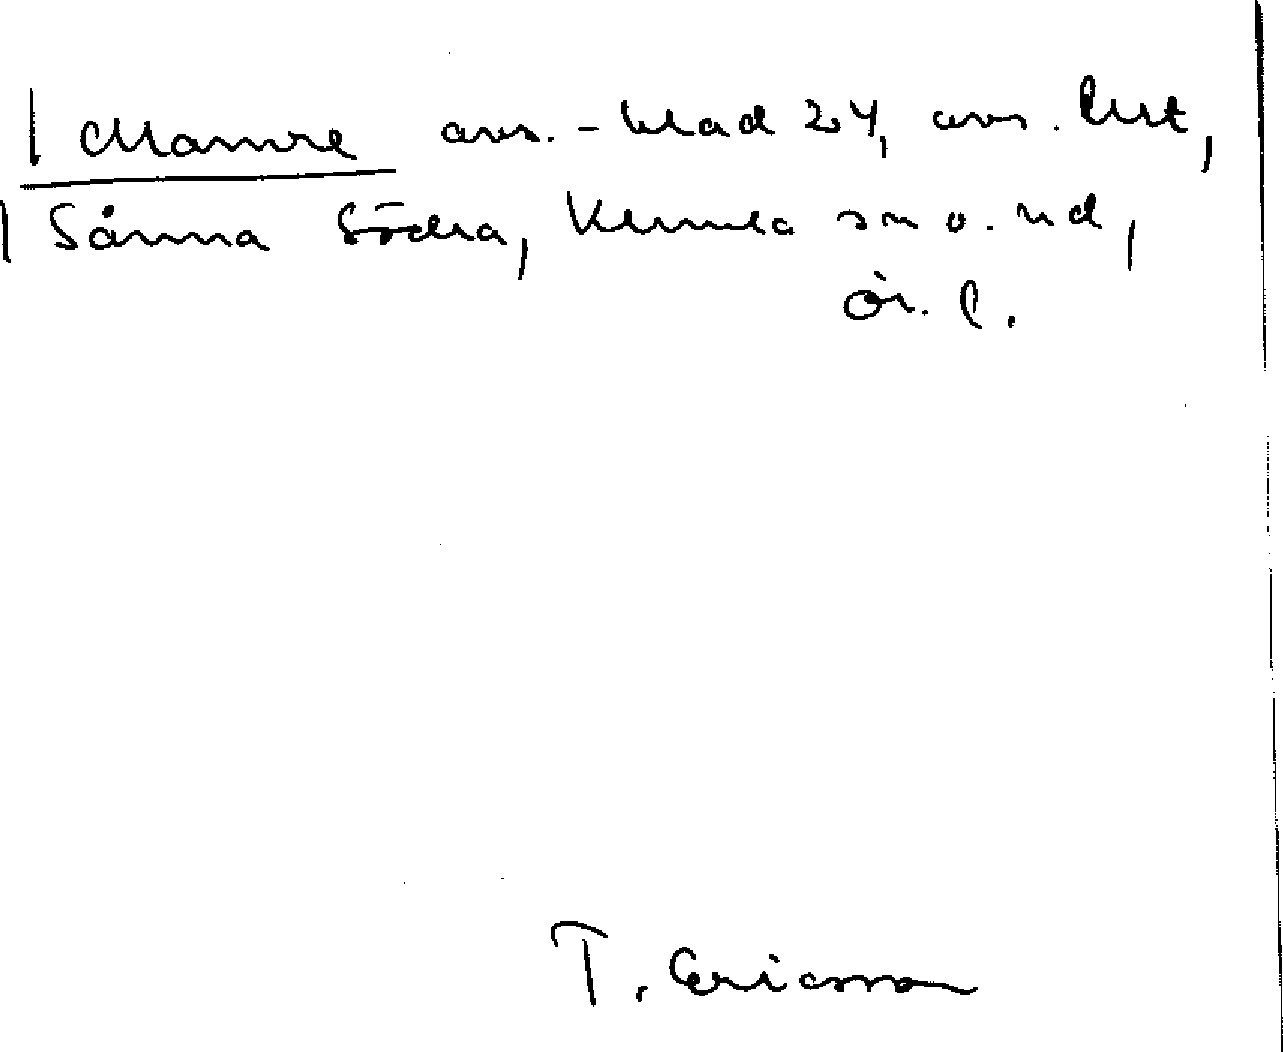 Mamre avs.-blad 24, avs. lst,
Sånna Södra, Kumla sn o. hd,
Ör. l.
T. Ericsson